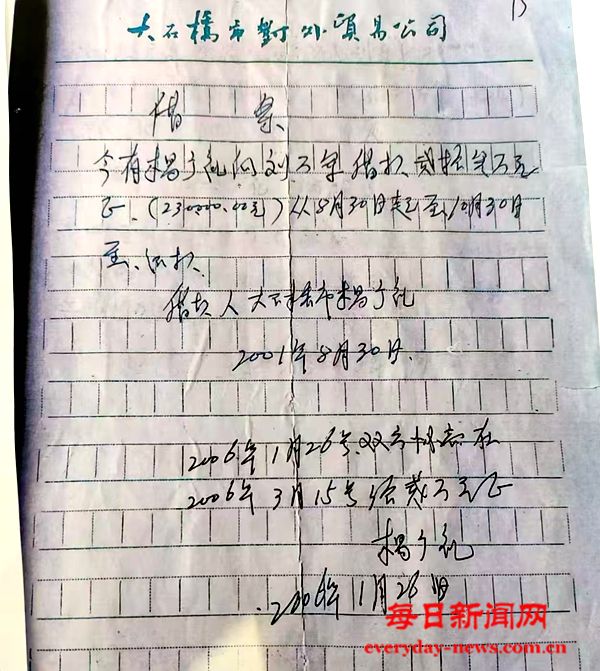 大石橋市對外貿易公司
借条
今有杨广礼向刘万军借款贰拾叁万元
正.(230000.00元)从8月30日起至10月30日
至.还款.
借款人大石桥市杨广礼
2001年8月30日.
2006年1月26号.双方
2006年3月15号给贰万元正
杨广礼
2006年1月26日
每日新闻网
everyday-news.com.cn